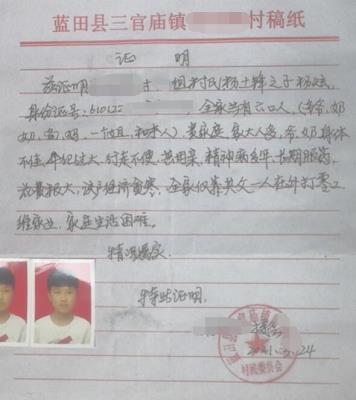 蓝田县三官庙镇 村稿纸
证 明
兹证明 村民杨 之子杨
身份证号:61012 全家共有六口人,(爷爷、奶
奶、爸、妈、一个姐、和本人)该家庭家大人多,爷、奶身体
不佳,年纪过大,行走不便,其母亲,精神病多年,长期服药,
花费极大,该户经济贫寒,全家仅靠其父一人在外打零工
维持家业,家庭生活困难。
情况属实
特此证明.
村委会
24
村民委员会